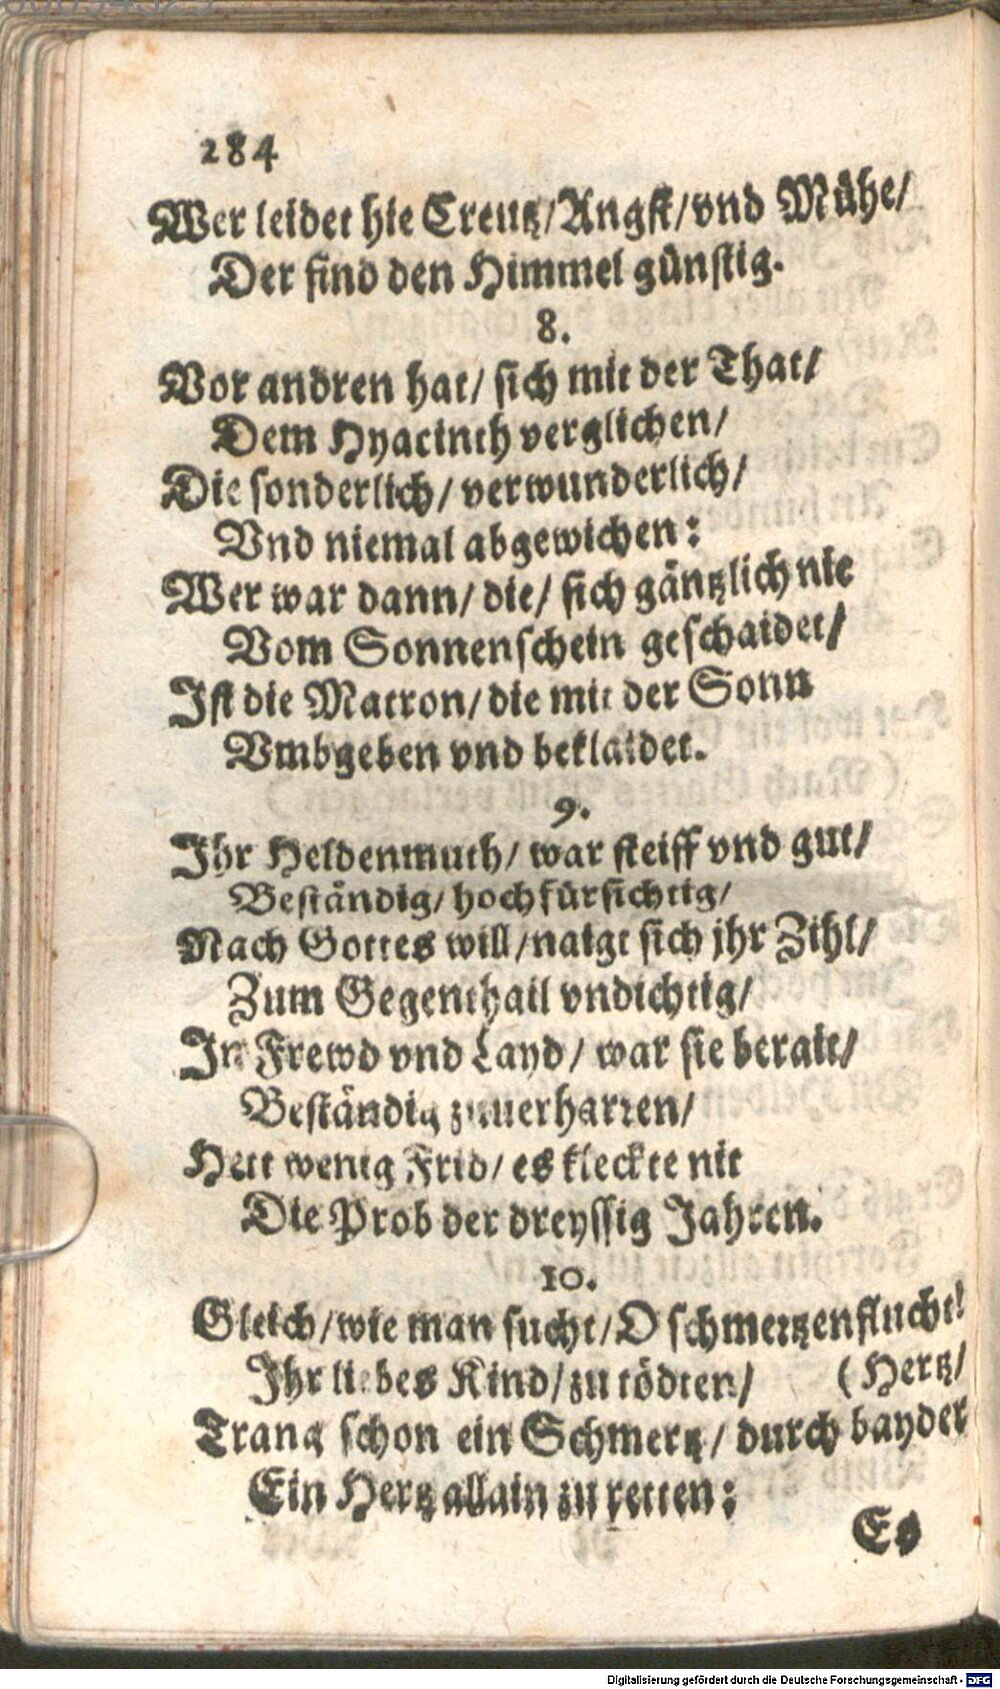 284
Wer leidet hie Creutz/Angst/vnd Mühe/
Der find den Himmel günstig.
8.
Vor andren hat/ sich mit der That/
Dem Hyacinth verglichen/
Die sonderlich/ verwunderlich/
Vnd niemal abgewichen:
Wer war dann/ die/ sich gäntzlich nie
Vom Sonnenschein geschaidet/
Ist die Matron/ die mit der Sonn
Vmbgeben vnd beklaidet.
9.
Ihr Heldenmuth/ war steiff vnd gut/
Beständig/ hochfürsichtig/
Nach Gottes will/naigt sich jhr Zihl/
Zum Gegenthail vndichtig/
In Frewd vnd Layd/ war sie berait/
Beständig zuuerharren/
Hett wenig Frid/ es kleckte nit
Die Prob der dreyssig Jahren.
10.
Gleich/wie man sucht/O schmertzenflucht!
Ihr liebes Kind/zu tödten/ (Hertz/
Trang schon ein Schmertz/ durch bayder
Ein Hertz allain zu retten:
Es
Digitalisierung gefördert durch die Deutsche Forschungsgemeinschaft - DFG